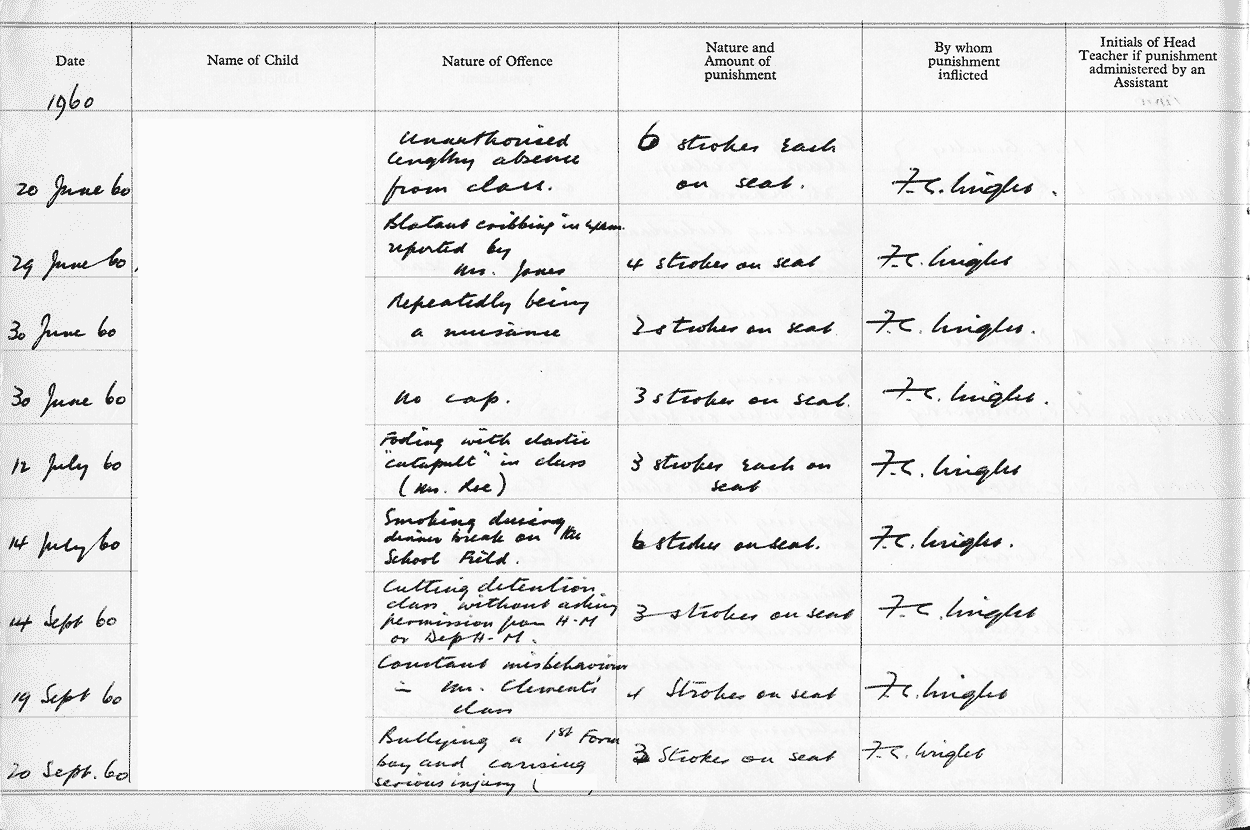 Date
Name of Child
Nature of Offence
Nature and
Amount of
punishment
By whom
punishment
inflicted
Initials of Head
Teacher if punishment
administered by an
Assistant
1960
20 June 60
Unauthorised
lengthy absence
from class.
6 strokes each
on seat.
F.C. Wright.
29 June 60,
Blatant cribbing in exam.
reported by
Mr. Jones
4 strokes on seat
F.C. Wright
30 June 60
Repeatedly being
a nuisance
2 strokes on seat.
F.C. Wright.
30 June 60
No cap.
3 strokes on seat.
F.C. Wright.
12 July 60
Fooling with elastic
"catapult" in class
(Mr. Roe)
3 strokes each on
seat
F.C. Wright
14 July 60
Smoking during
dinner break on the
School Field.
6 strokes on seat.
F.C. Wright.
14 Sept 60
Cutting detention
class, without asking
permission from H-M
or Dep H-M.
3 strokes on seat
F.C. Wright
19 Sept 60
Constant misbehaviour
in Mr. Clements'
class
4 Strokes on seat
F.C. Wright
20 Sept. 60
Bullying a 1st Form
boy and causing
serious injury (
3 Strokes on seat
F.C. Wright